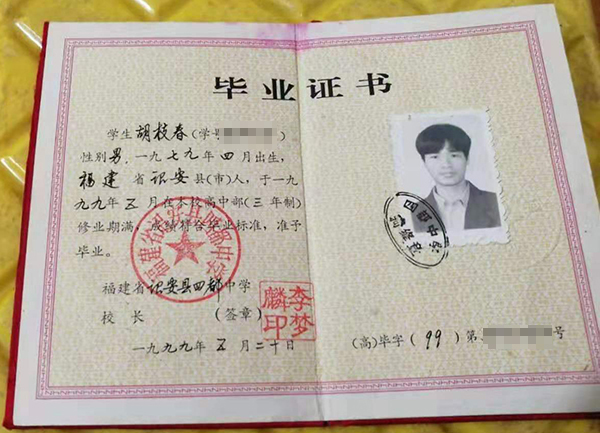 毕业证书
学生胡枝春(学号 )
性别男,一九七九年四月出生,
福建省诏安县(市)人,于一九
九九年五月在本校高中部(三年制)
修业期满,成绩符合毕业标准,准予
毕业。
福建省诏安县四都中学
校 长 (签章)
李梦麟印
一九九九年五月二十日
(高)毕字(99)第 号
福建省诏安县四都中学
四都中学